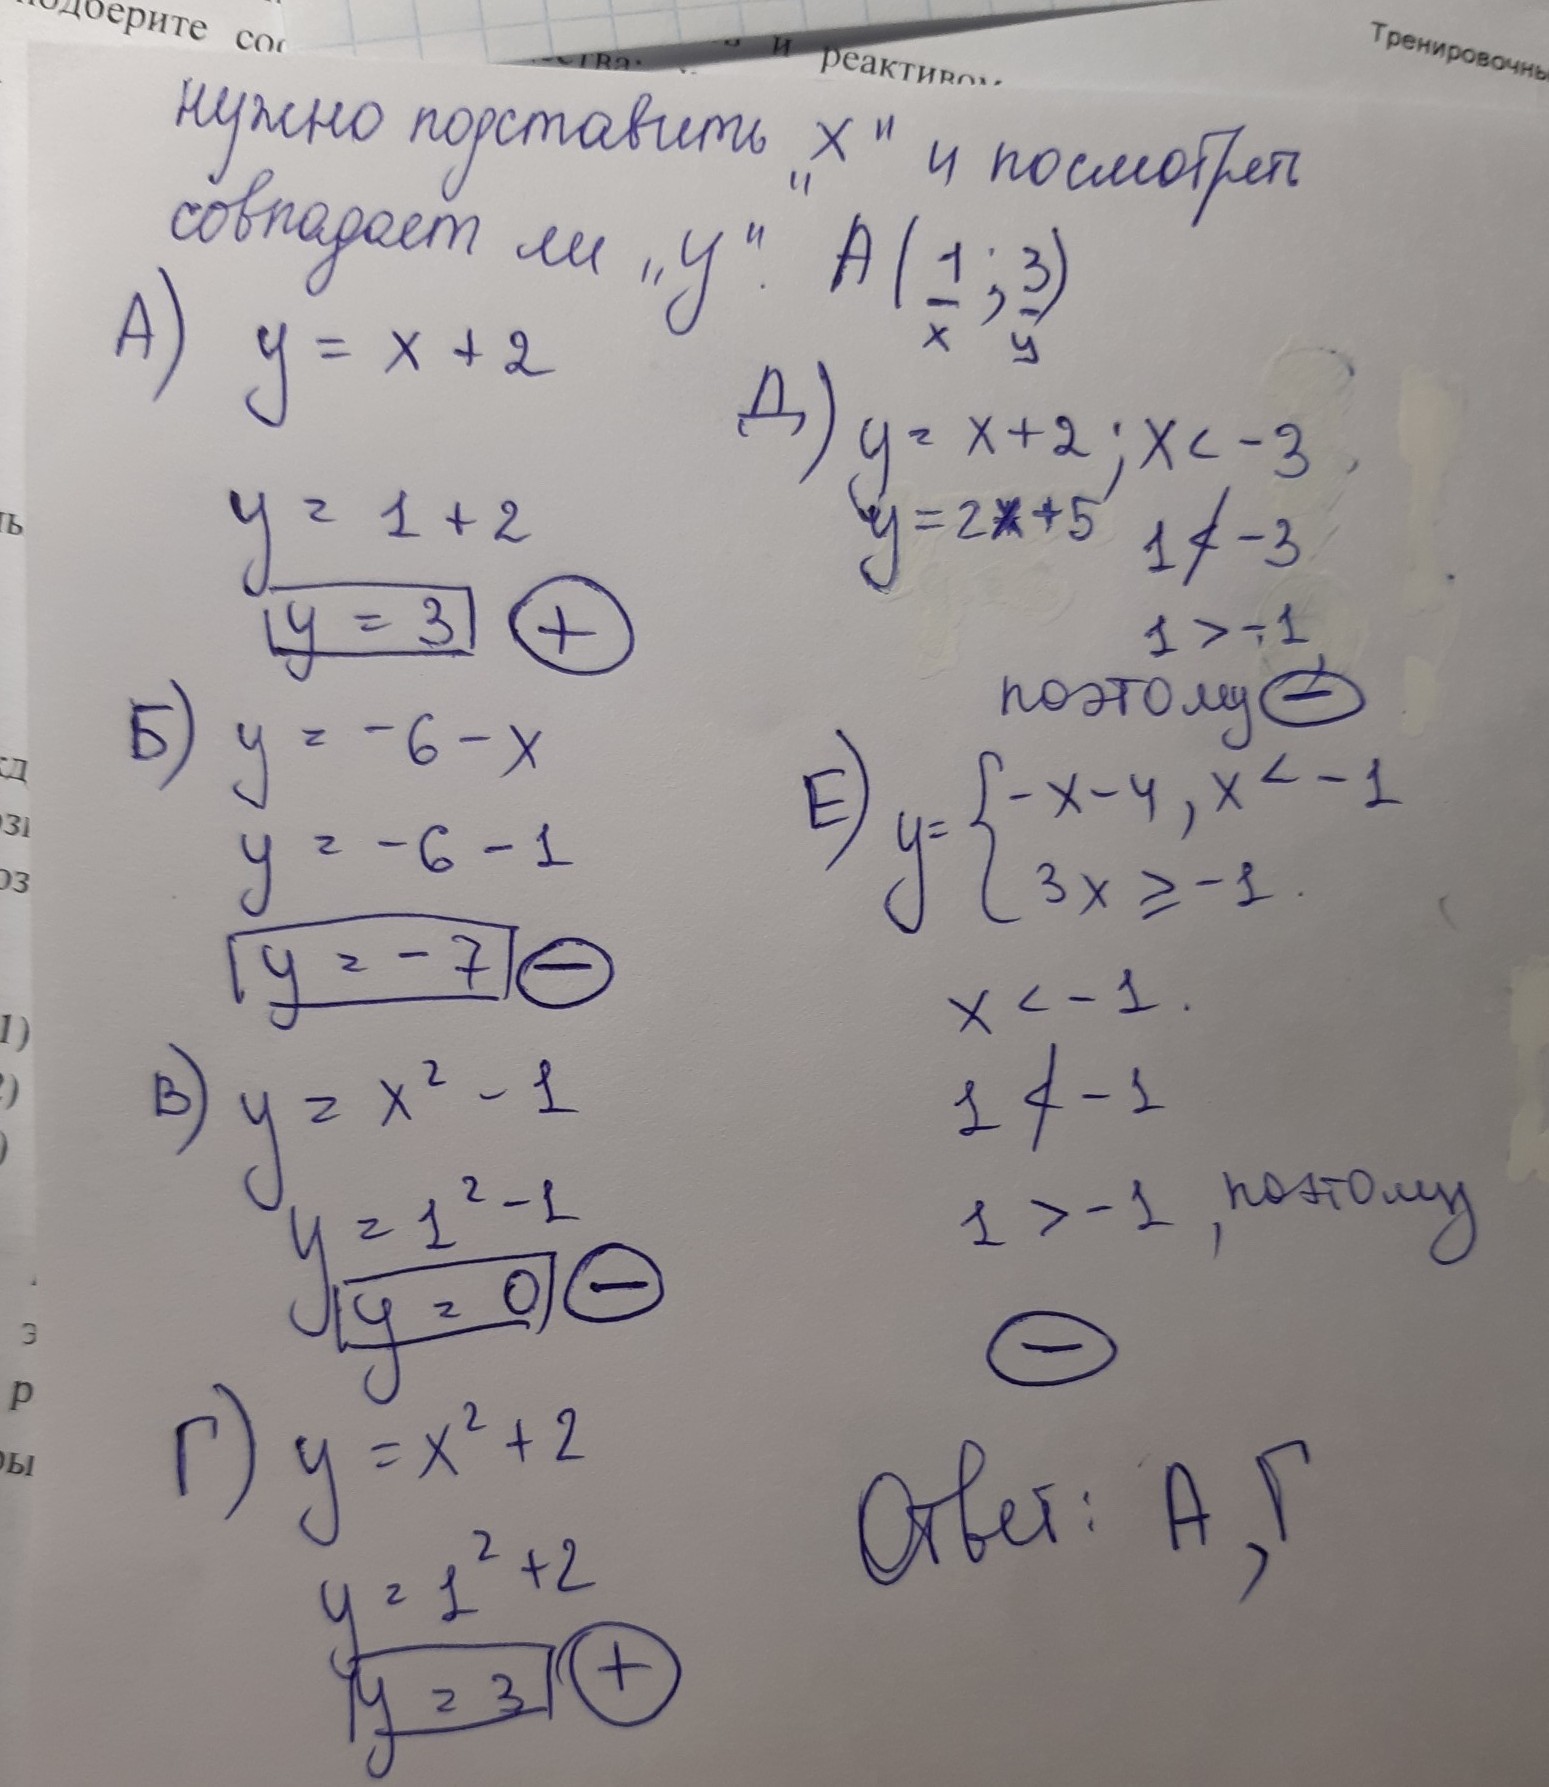 одберите
реактивом
Тренировочны
нужно подставить „x" и посмотреть
совпадает ли „y". A(1;3)
x y
А) y = x + 2
y = 1 + 2
y = 3 +
Б) y = -6 - x
y = -6 - 1
y = -7 −
В) y = x² - 1
y = 1² - 1
y = 0 −
Г) y = x² + 2
y = 1² + 2
y = 3 +
Д) y = x + 2; x < -3
y = 2x + 5 1 ≮ -3
1 > -1
поэтому −
Е) y = { -x - 4, x < -1
3x ≥ -1.
x < -1.
1 ≮ -1
1 > -1, поэтому
−
Ответ: А, Г